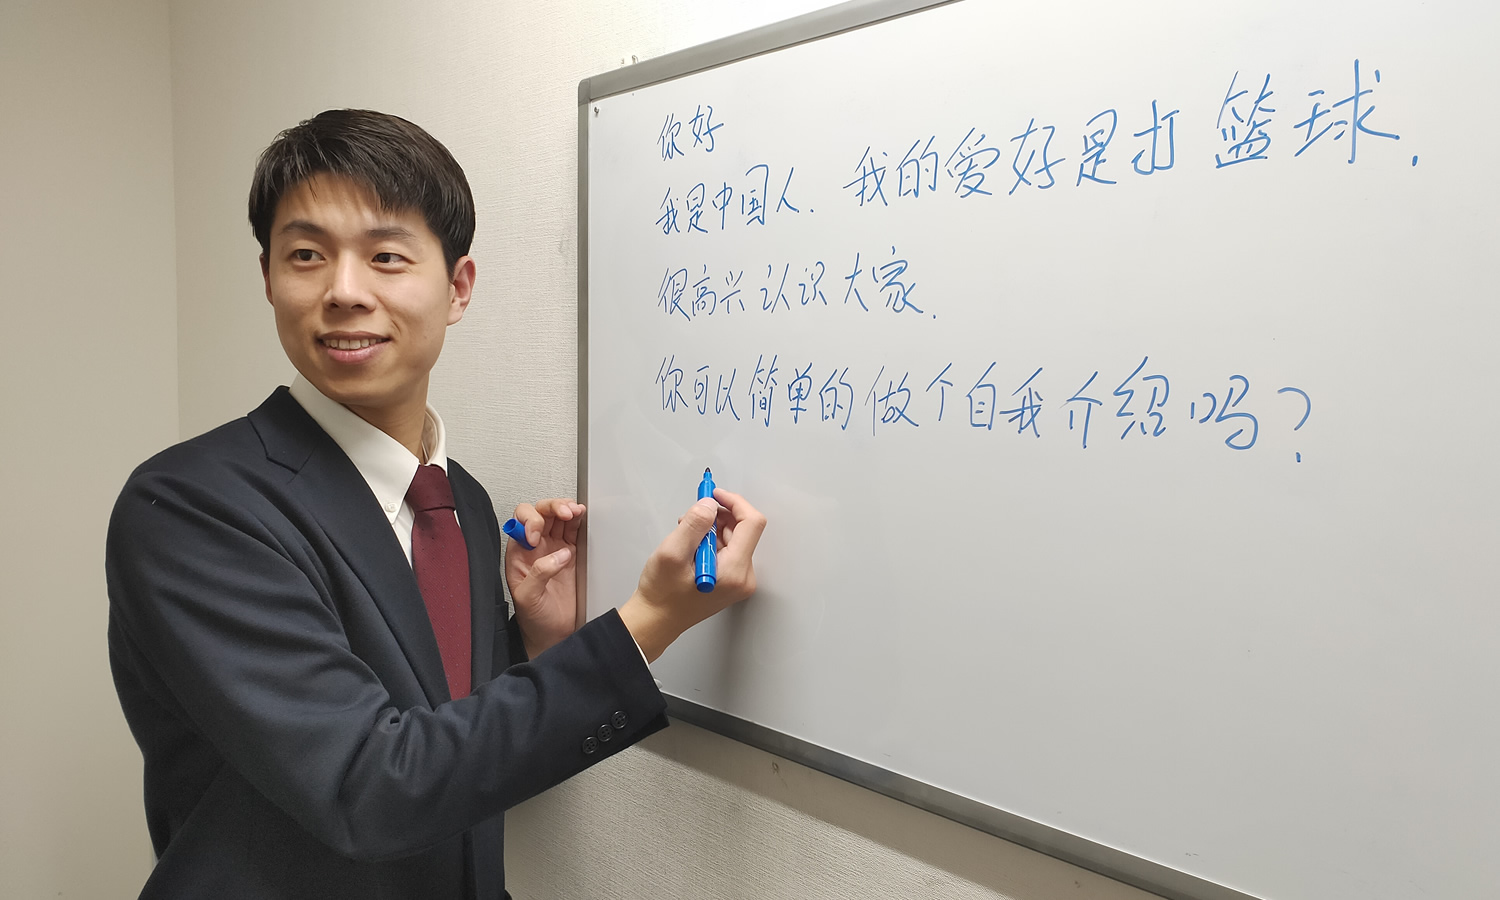 你好
我是中国人. 我的爱好是打篮球.
很高兴认识大家.
你可以简单的做个自我介绍吗?